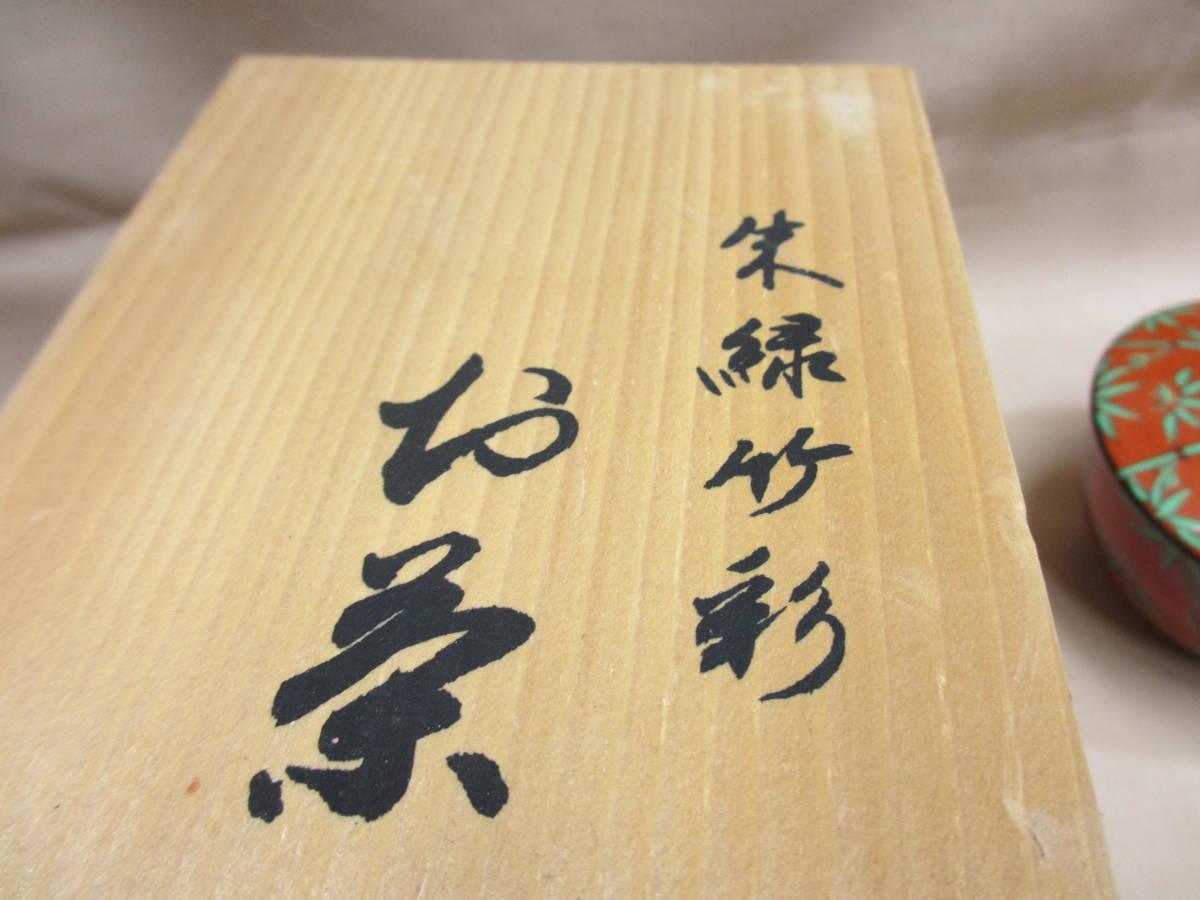 朱緑竹彩
お茶